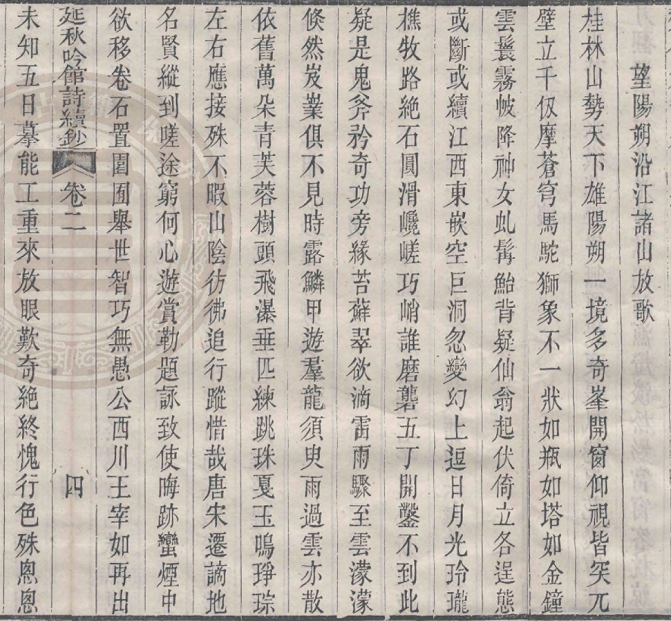 望陽朔沿江諸山放歌
桂林山勢天下雄陽朔一境多奇峯開窗仰視皆突兀
壁立千仭摩蒼穹馬駝獅象不一狀如瓶如塔如金鐘
雲鬟霧帔降神女虬髯鮐背疑仙翁起伏倚立各逞態
或斷或續江西東嵌空巨洞忽變幻上逗日月光玲瓏
樵牧路絶石圓滑巉嵯巧峭誰磨礱五丁開鑿不到此
疑是鬼斧矜奇功旁緣苔蘚翠欲滴雷雨驟至雲濛濛
倐然岌嶪俱不見時露鱗甲遊羣龍須臾雨過雲亦散
依舊萬朵青芙蓉樹頭飛瀑垂匹練跳珠戛玉鳴琤琮
左右應接殊不暇山陰彷彿追行蹤惜哉唐宋遷謫地
名賢縱到嗟途窮何心遊賞勒題詠致使晦跡蠻煙中
欲移卷石置園囿舉世智巧無愚公西川王宰如再出
延秋吟館詩續鈔 卷二 四
未知五日摹能工重來放眼歎奇絶終愧行色殊悤悤